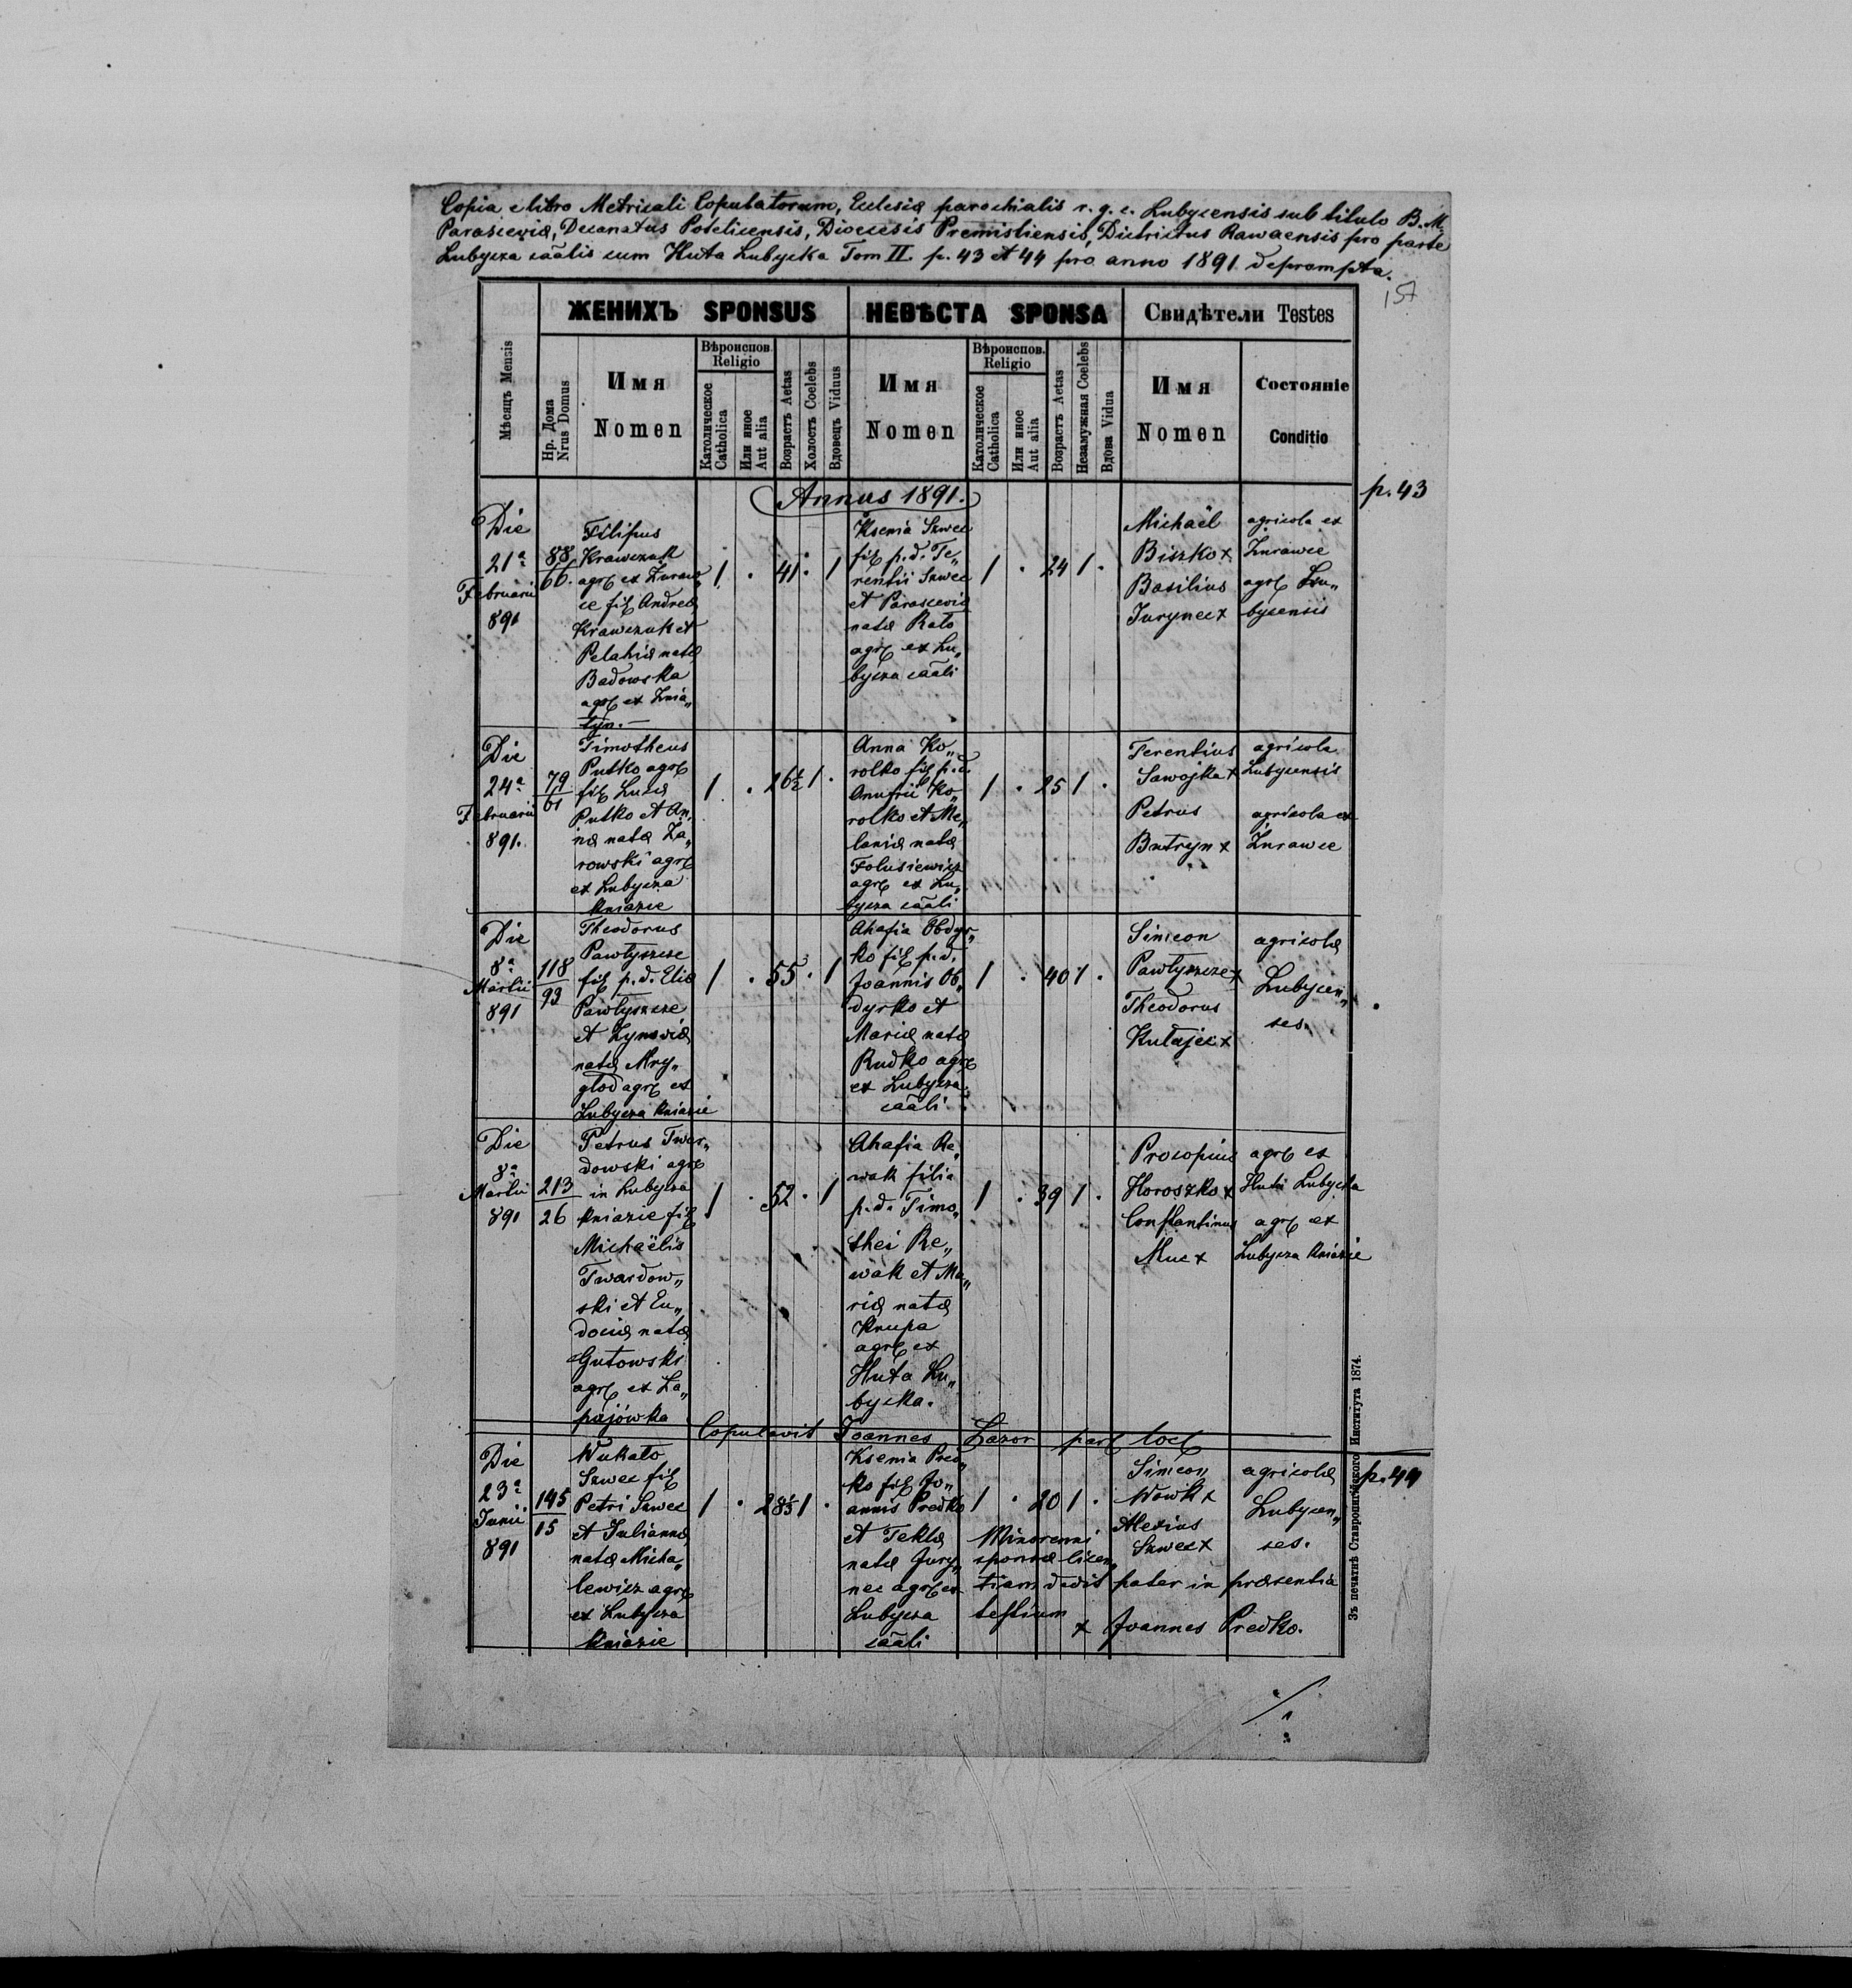 Copia e libro Metricali Copulatorum, Ecclesiæ parochialis r. g. c. Lubycensis sub titulo B. M.
Parasceviæ, Decanatus Potelicensis, Diocesis Premisliensis, Districtus Rawaensis pro parte
Lubycza cââlis cum Huta Lubycka Tom II. p. 43 et 44 pro anno 1891 deprompta.
157
ЖЕНИХЪ SPONSUS
НЕВѢСТА SPONSA
Свидѣтели Testes
Мѣсяцъ Mensis
Нр. Дома
Nrus Domus
Имя
Nomen
Вѣроиспов.
Religio
Католическое
Catholica
Или иное
Aut alia
Возрастъ Aetas
Холостъ Coelebs
Вдовецъ Viduus
Имя
Nomen
Вѣроиспов.
Religio
Католическое
Catholica
Или иное
Aut alia
Возрастъ Aetas
Незамужная Coelebs
Вдова Vidua
Имя
Nomen
Состояніе
Conditio
Annus 1891.
p. 43
Die
21ª
Februarii
891
88
66.
Filipus
Krawczuk
agrę ex Zuraw„
ce filę Andreæ
Krawczuk et
Pelahiæ natæ
Badowska
agrę ex Znia„
tyn. —
1 . 41 . 1
Ksenia Szwec
filę p. d. Te„
rentii Szwec
et Parasceviæ
natæ Rato
agrę ex Lu„
bycza cââli
1 . 24 1 .
Michaël
Biszko x
Basilius
Jurynec x
agricola ex
Zurawce
agrę Lu„
bycensis
Die
24ª
Februarii
891.
79
61
Timotheus
Putko agrę
filę Lucæ
Putko et An„
næ natæ Za„
rowski agrę
ex Lubycza
kniazie
1 . 26½ 1 .
Anna Ko„
rolko filę p. d.
Anufrii Ko„
rolko et Me„
laniæ natæ
Folusiewicz
agrę ex Lu„
bycza cââli
1 . 25 1 .
Terentius
Sawojka x
Petrus
Butryn x
agricola
Lubycensis
agricola ex
Zurawce
Die
8ª
Martii
891
118
93
Theodorus
Pawłyszcze
filę p. d. Eliæ
Pawłyszcze
et Zynoviæ
natæ Mry„
glod agrę ex
Lubycza kniazie
1 . 55 . 1
Ahafia Obdyr„
ko filę p. d.
Joannis Ob„
dyrko et
Mariæ natæ
Rudko agrę
ex Lubycza
cââli
1 . 40 1 .
Simeon
Pawłyszcze x
Theodorus
Kułajec x
agricolæ
Lubycen„
ses.
Die
8ª
Martii
891
213
26
Petrus Twar„
dowski agrę
in Lubycza
kniazie filę
Michaëlis
Twardow„
ski et Eu„
dociæ natæ
Gutowski
agrę ex Ła„
pajówka
1 . 52 . 1
Ahafia Re„
wak filia
p. d. Timo„
thei Re„
wak et Ma„
riæ natæ
Knupa
agrę ex
Huta Lu„
bycka.
1 . 39 1 .
Procopius
Horoszko x
Constantinus
Muc x
agrę ex
Huta Lubycka
agrę ex
Lubycza kniazie
Copulavit Joannes Lazor parę locę
p. 44
Die
23ª
Junii
891
145
15
Wukało
Szwec filę
Petri Szwec
et Juliannæ
natæ Micha„
lewicz agrę
ex Lubycza
kniazie
1 . 28⅓ 1 .
Ksenia Pred„
ko filę Jo„
annis Predko
et Teklæ
natæ Jury„
nec agrę ex
Lubycza
cââli
1 . 20 1 .
Simeon
Wowk x
Alexius
Szwec x
agricolæ
Lubycen„
ses.
Minorenni
sponsæ licen„
tiam dedit pater in præsentia
testium
x Joannes Predko.
Зъ печатнѣ Ставропигійского Института 1874.